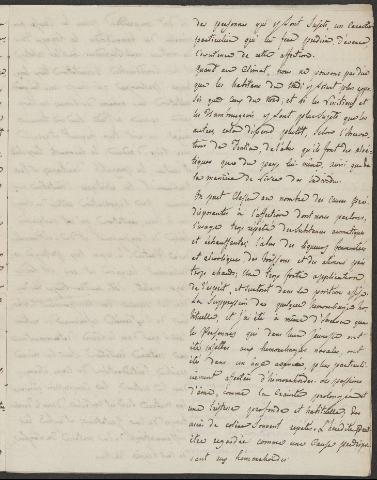 des personnes qui y sont sujets, un caractère
particulier qui les fera prédire d'avance
l'existence de cette affection.
Quant au climat, nous ne pouvons pas dire
que les habitans du Midi y soient plus expo-
sés que ceux du Nord; et si les
et les y sont plus sujets que les
autres, cela dépend plutôt, selon
de de l'abus qu'ils font des
que du pays lui même, ainsi que de
la manière de vivre des individus.
On peut classer au nombre des causes pré-
disposantes à l'affection dont nous parlons,
l'usage trop répété des substances aromatiques
et échauffantes; l'abus des liqueurs fermentées
et alcooliques des boissons et des alimens pris
trop chauds; une trop forte application
de l'esprit, et surtout dans la position assise.
La suppression de quelques hémorrhagies ha-
bituelles, et j'ai été à même d'
les personnes qui dans leur jeunesse ont
été sujettes aux hémorrhagies nasales, ont
été dans un âge avancé, plus particuli-
èrement affectées d'hémorrhoïdes. Les passions
d'âme, comme la crainte prolongée et
une tristesse profonde et habituelle, des
accès de colère souvent répétés. L'hérédité peut
être regardée comme une cause prédispo-
sant aux hémorrhoïdes